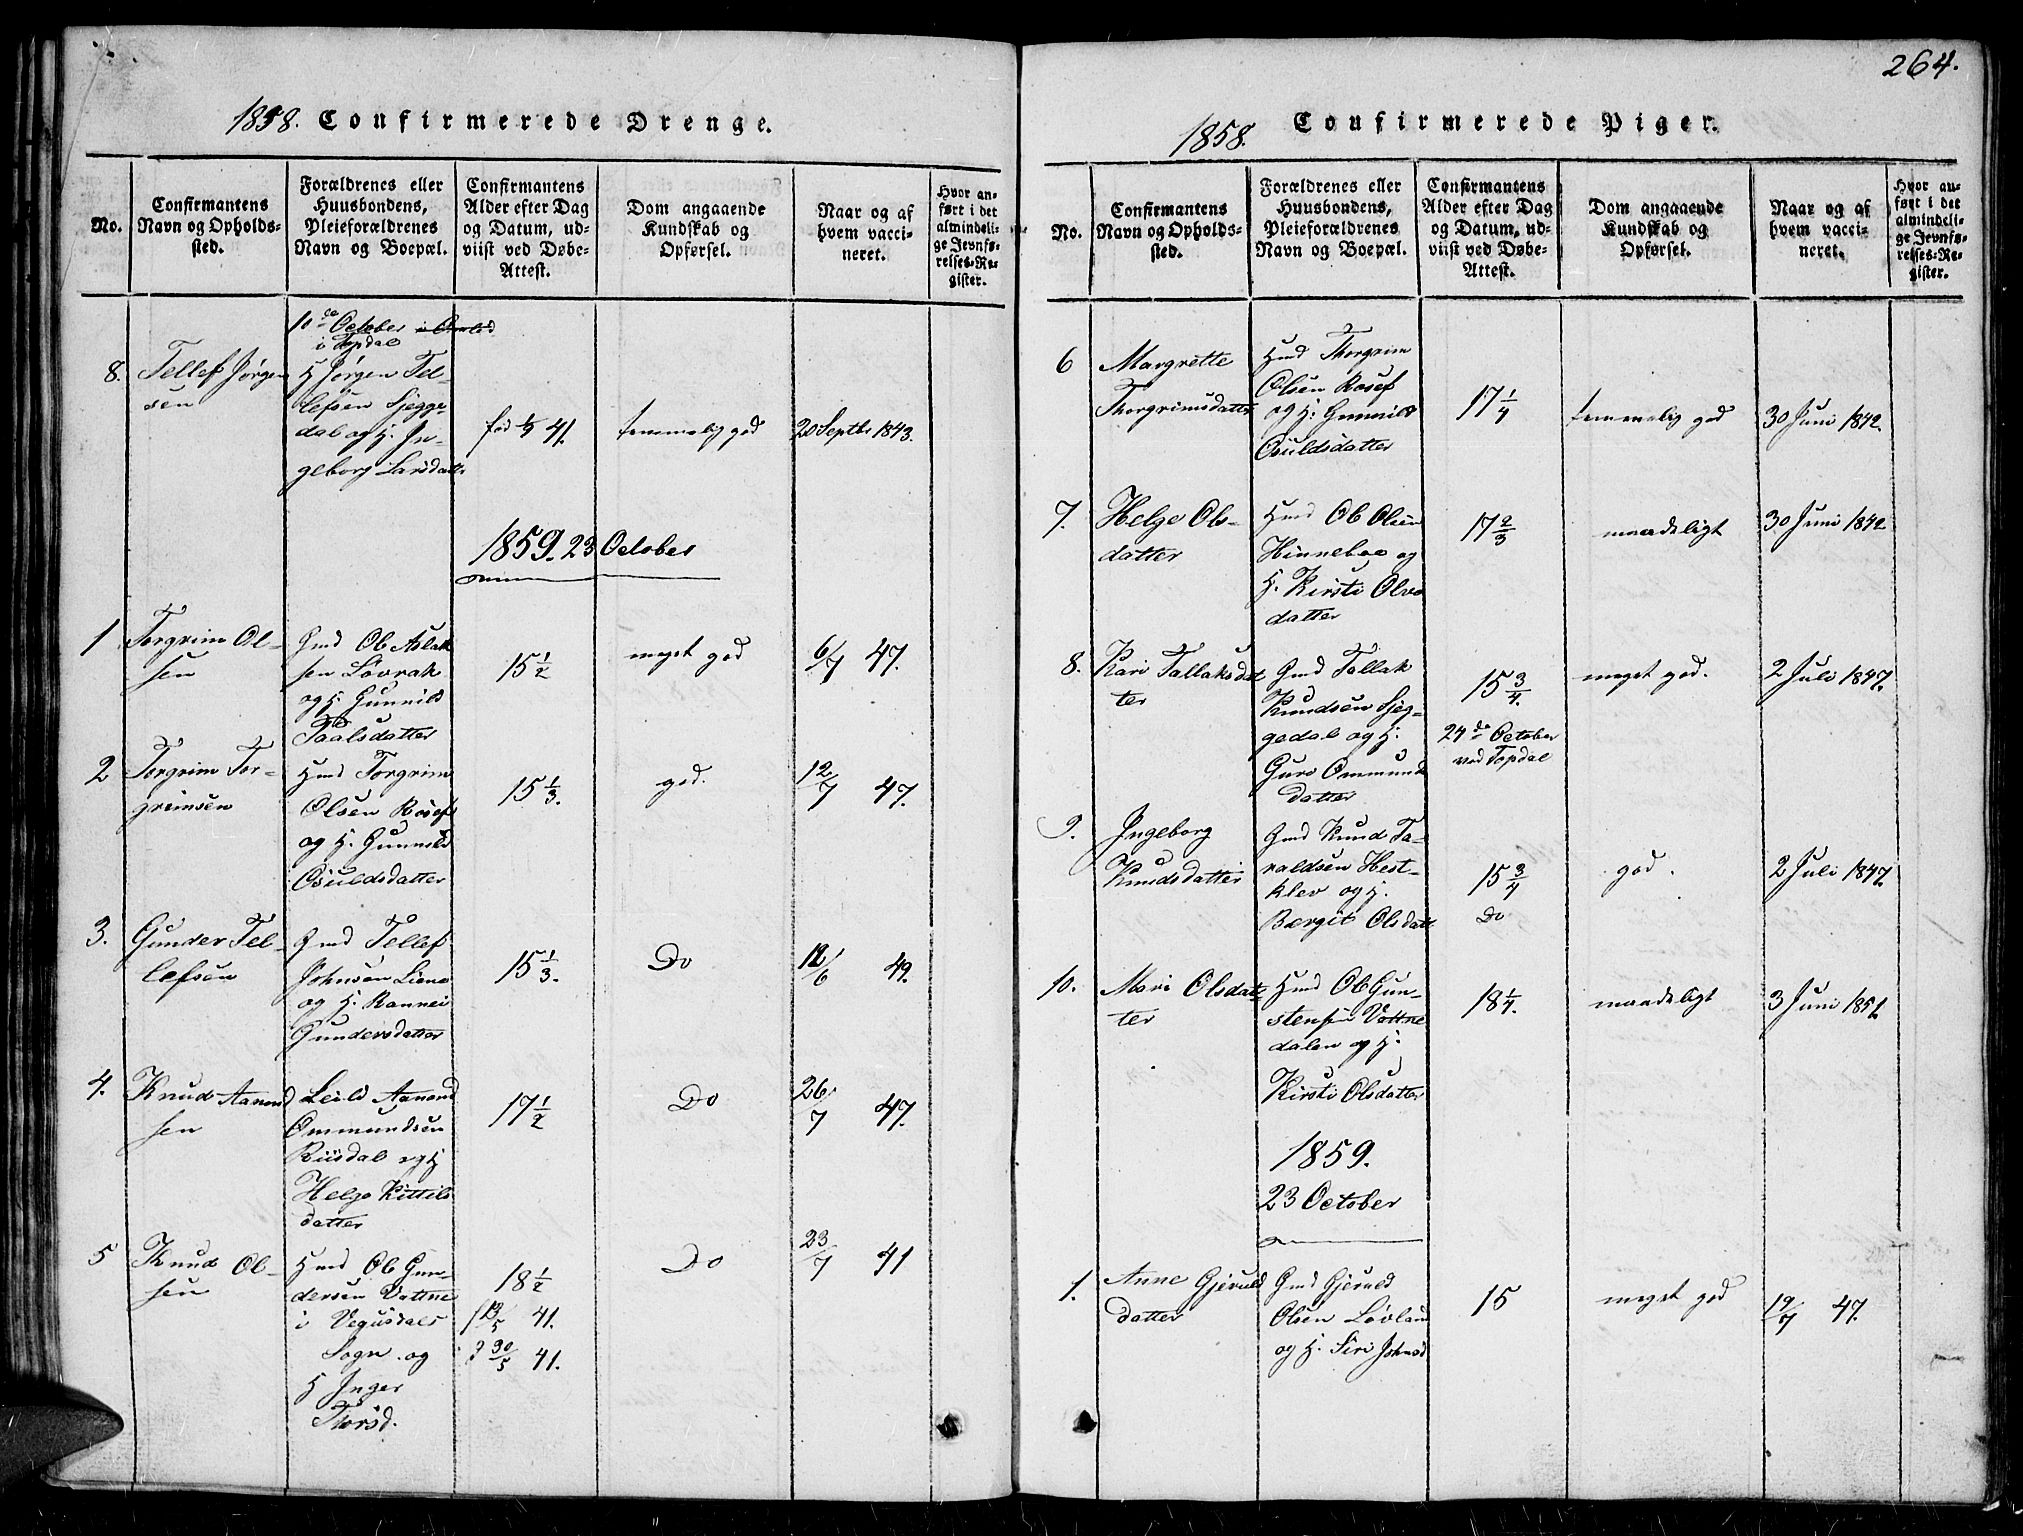 264.
1858. Confirmerede Drenge.
No.
Confirmantens
Navn og Opholds-
sted.
Forældrenes eller
Huusbondens,
Pleieforældrenes
Navn og Boepæl.
Confirmantens
Alder efter Dag
og Datum, ud-
viist ved Døbe-
Attest.
Dom angaaende
Kundskab og
Opførsel.
Naar og af
hvem vacci-
neret.
Hvor an-
ført i det
almindeli-
ge Jevnfø-
relses-Re-
gister.
10de October
i Topdal
8. Tellef Jørgen
sen
H Jørgen Tel-
lefsen Sjegge-
dal og H. In-
geborg Larsdatter
fød 41.
temmelig god
20 Septbr 1843.
1859. 23 October
1 Torgrim Ol-
sen
Gmd Ole Aslak
sen Løvrak
og H. Gunnild
Taalsdatter
15 1/2
meget god
6/7 47.
2 Torgrim Tor-
grimsen
Hmd Torgrim
Olsen Rosef
og H. Gunnild
Osuldsdatter
15 1/3.
god.
12/7 47.
3. Gunder Tel-
lefsen
Gmd Tellef
Johnsen Liene
og H. Rannei
Gundersdatter
15 1/3.
Do
12/6 49.
4. Knud Aanond
sen
Leild Aanond
Ommundsen
Riisdal og H
Helge Kittils
datter
17 1/2
Do
26/7 47.
5 Knud Ol-
sen
Hmd Ole Gun-
dersen Vattne
i Vegusdals
Sogn og
H Inger
Thorsd.
18 1/2
41.
30/5 41.
Do
23/7 41
1858. Confirmerede Piger.
No.
Confirmantens
Navn og Opholds-
sted.
Forældrenes eller
Huusbondens,
Pleieforældrenes
Navn og Boepæl.
Confirmantens
Alder efter Dag
og Datum, ud-
viist ved Døbe-
Attest.
Dom angaaende
Kundskab og
Opførsel.
Naar og af
hvem vacci-
neret.
Hvor an-
ført i det
almindeli-
ge Jevnfø-
relses-Re-
gister.
6 Margrette
Thorgrimsdatter
Hmd Thorgrim
Olsen Rosef
og H. Gunnild
Osuldsdatter
17 1/4
temmelig god
30 Juni 1842.
7. Helge Ols-
datter
Hmd Ole Olsen
Hinneboe og
H. Kirsti Olvs
datter
17 2/3
maadeligt
30 Juni 1842
8. Kari Tallaksdat
ter
Gmd Tallak
Knudsen Sjeg-
gedal og H.
Guro Ommunds
datter
15 3/4.
24de October
ved Topdal
meget god.
2 Juli 1847.
9. Ingeborg
Knudsdatter
Gmd Knud Ta-
raldsen Hest-
klev og H.
Bergit Olsdatt
15 3/4
Do
god.
2 Juli 1847.
10. Mari Olsdat-
ter
Hmd Ole Gun-
stensen Vattne
dalen og H.
Kirsti Olsdatter
18 1/4.
maadeligt
3 Juni 1851.
1859.
23 October
1. Anne Gjeruld
datter
Gmd Gjeruld
Olsen Løvland
og H. Siri Johnsd
15
meget god
19/7 47.